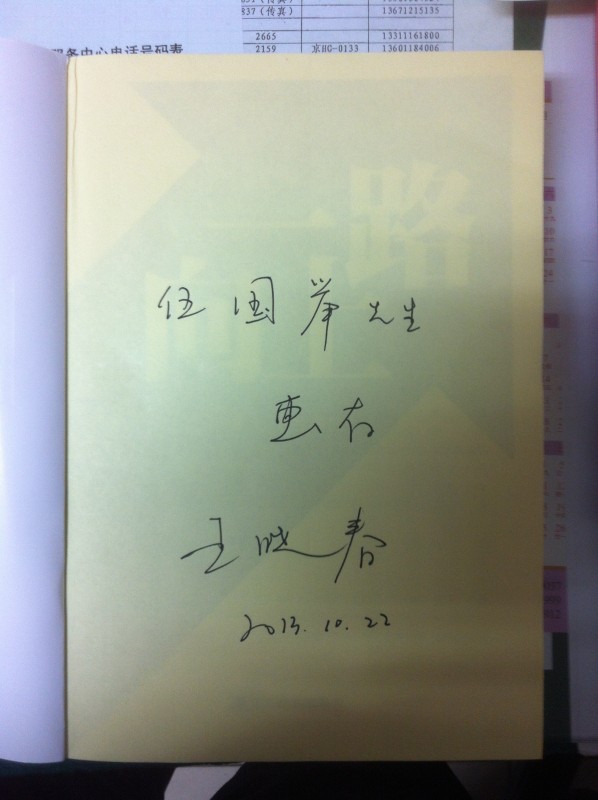 837（传真） 13671215135
2665 13311161800
服务中心电话号码表
2159 京HG-0133 13601184006
一路
向上
伍国举先生
惠存
王晓春
2013.10.22